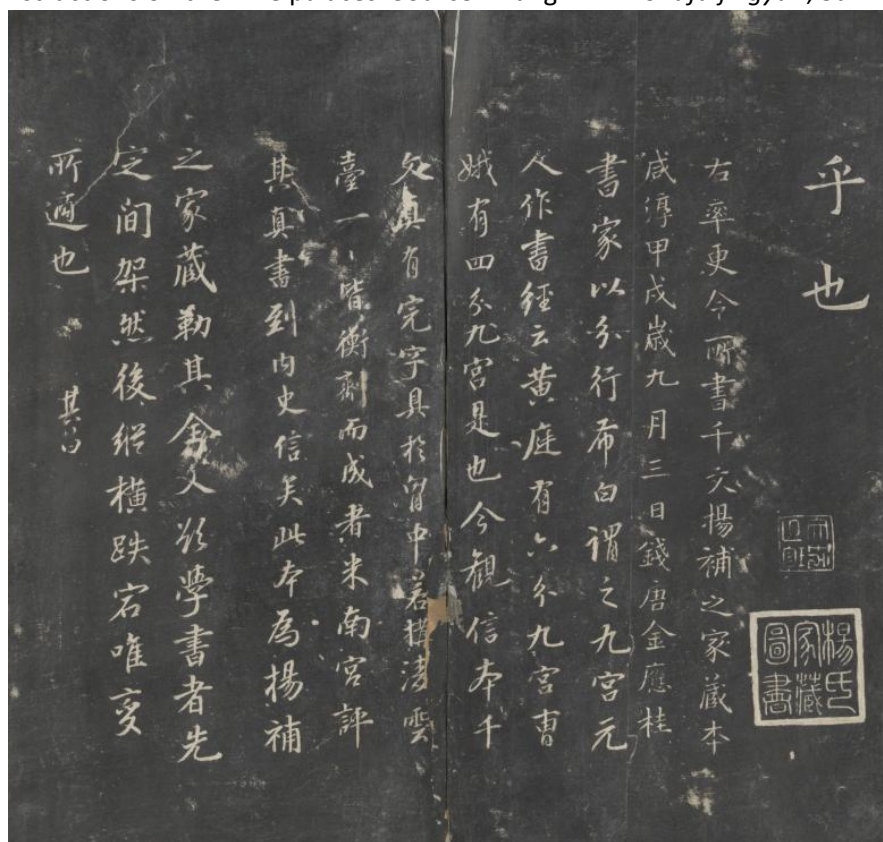 乎也
楊氏家藏圖書
右率更令所書千文楊補之家藏本
咸淳甲戌歲九月三日錢唐金應桂
書家以分行布白謂之九宮元
人作書經云黃庭有六分九宮曹
娥有四分九宮是也今觀信本千
文真有完字具於胷中若構淩雲
臺一一皆衡劑而成者米南宮評
其真書到內史信矣此本為楊補
之家藏勒其全文欲學書者先
定間架然後縱橫跌宕唯變
所適也 其昌